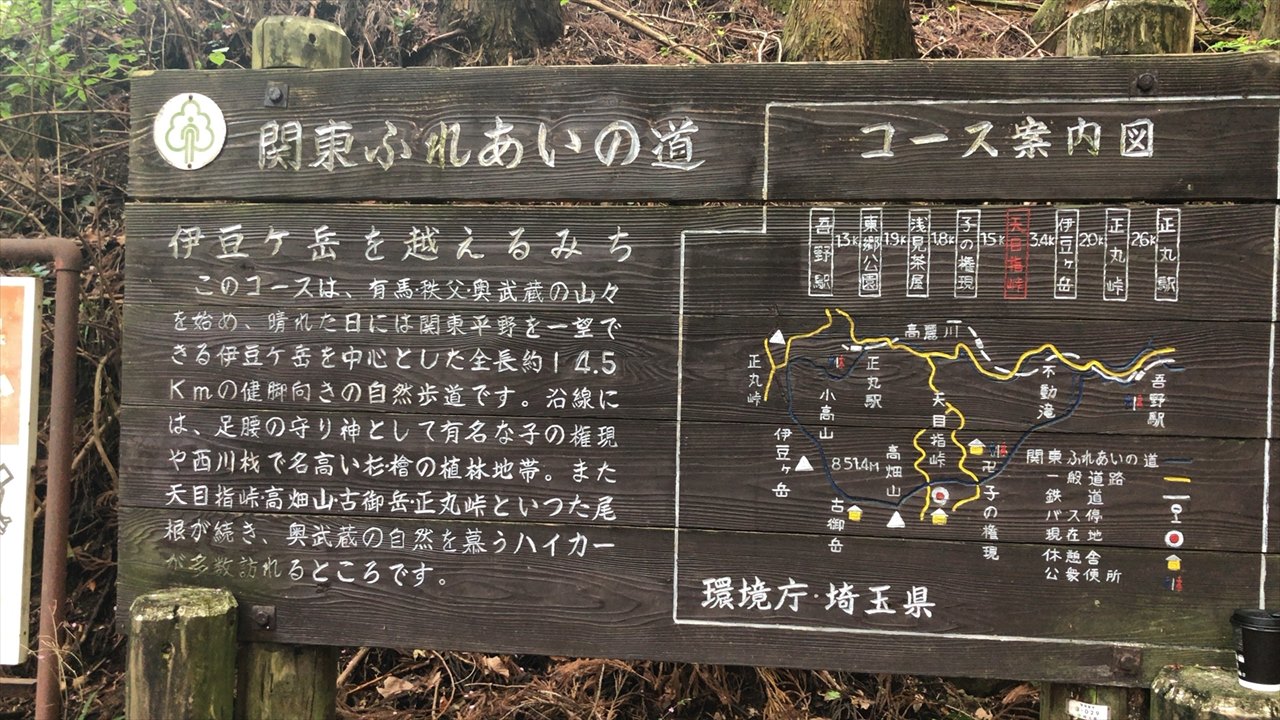 関東ふれあいの道
コース案内図
伊豆ケ岳を越えるみち
このコースは、有馬秩父奥武蔵の山々
を始め、晴れた日には関東平野を一望で
きる伊豆ケ岳を中心とした全長約14.5
Kmの健脚向きの自然歩道です。沿線に
は、足腰の守り神として有名な子の権現
や西川材で名高い杉・檜の植林地帯。また
天目指峠・高畑山・古御岳・正丸峠といった尾
根が続き、奥武蔵の自然を慕うハイカー
が多数訪れるところです。
吾野駅
1.3K
東郷公園
1.9K
浅見茶屋
1.8K
子の権現
1.5K
天目指峠
3.4K
伊豆ケ岳
2.0K
正丸峠
2.6K
正丸駅
高麗川
正丸峠
正丸駅
小高山
不動滝
吾野駅
天目指峠
伊豆ケ岳
851.4M
高畑山
卍
子の権現
古御岳
関東ふれあいの道
一般道路
鉄道
バス停
現在地
休憩舎
公衆便所
環境庁・埼玉県